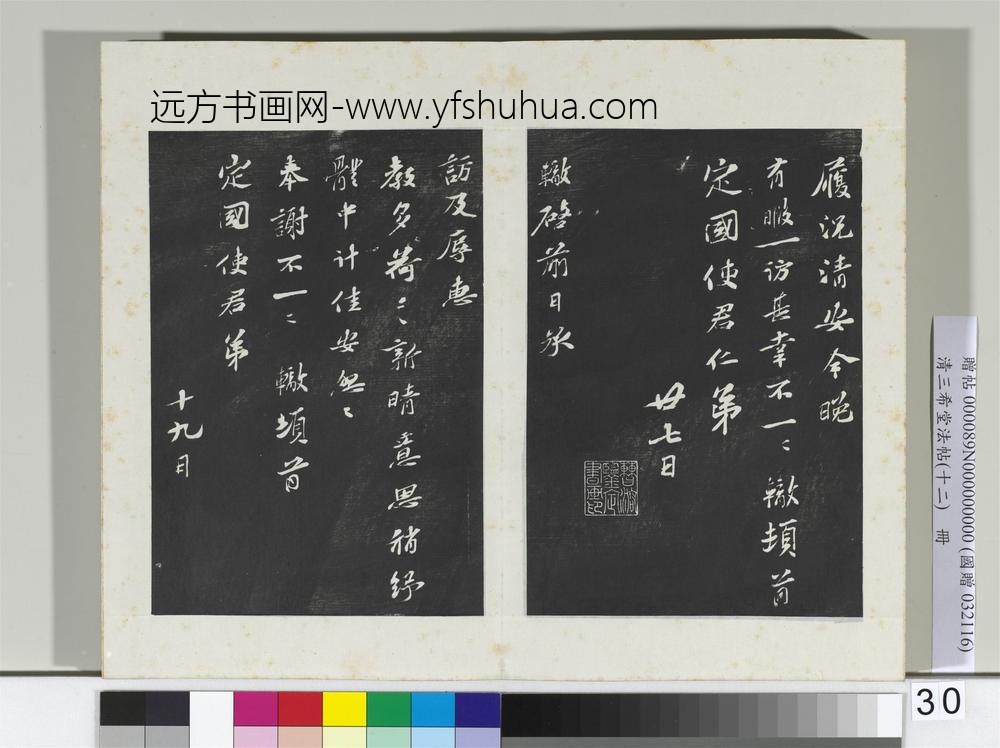 远方书画网-www.yfshuhua.com
履况清安今晚
有暇一访甚幸不一〻轍頓首
定國使君仁弟
廿七日
轍啓前日承
訪及辱惠
教多荷〻新晴意思稍紓
體中計佳安
奉謝不一〻轍頓首
定國使君弟
十九日
贈帖 000089N000000000 (國贈 032116)
清三希堂法帖(十二) 冊
30